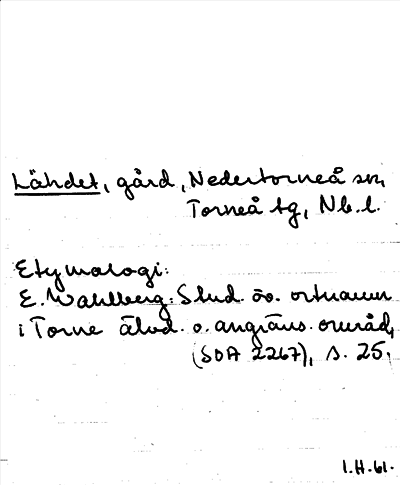 Lähdet, gård, Nedertorneå sn,
Torneå tg, Nb. l.
Etymologi:
E. Wahlberg: Stud. öv. ortnamn
i Torne älvd. o. angräns. område,
(SOA 2267), s. 25.
I.H. 61.